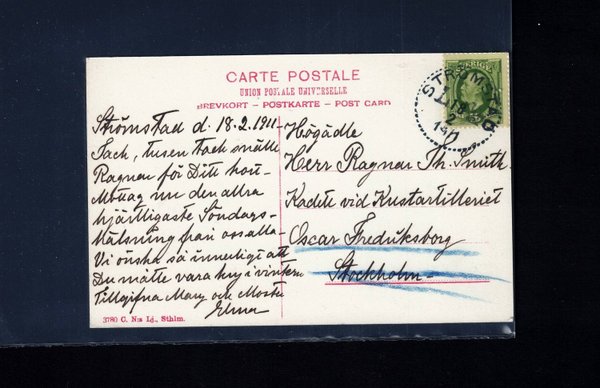 CARTE POSTALE
UNION POSTALE UNIVERSELLE
BREVKORT – POSTKARTE – POST CARD
SVERIGE
STRÖMSTAD
18
2
1911
Strömstad d. 18.2.1911
Tack, tusen tack snälle
Ragnar för Ditt kort
Mottag nu den allra
hjärtligaste Söndags-
hälsning från oss alla-
Vi önska så innerligt att
Du måtte vara kry i vinter
Tillgifna Mary och Moster
Elma
Högädle
Herr Ragnar Th. Smith
Kadett vid Kustartilleriet
Oscar Fredriksborg
Stockholm
3780 C. Ns Lj., Sthlm.